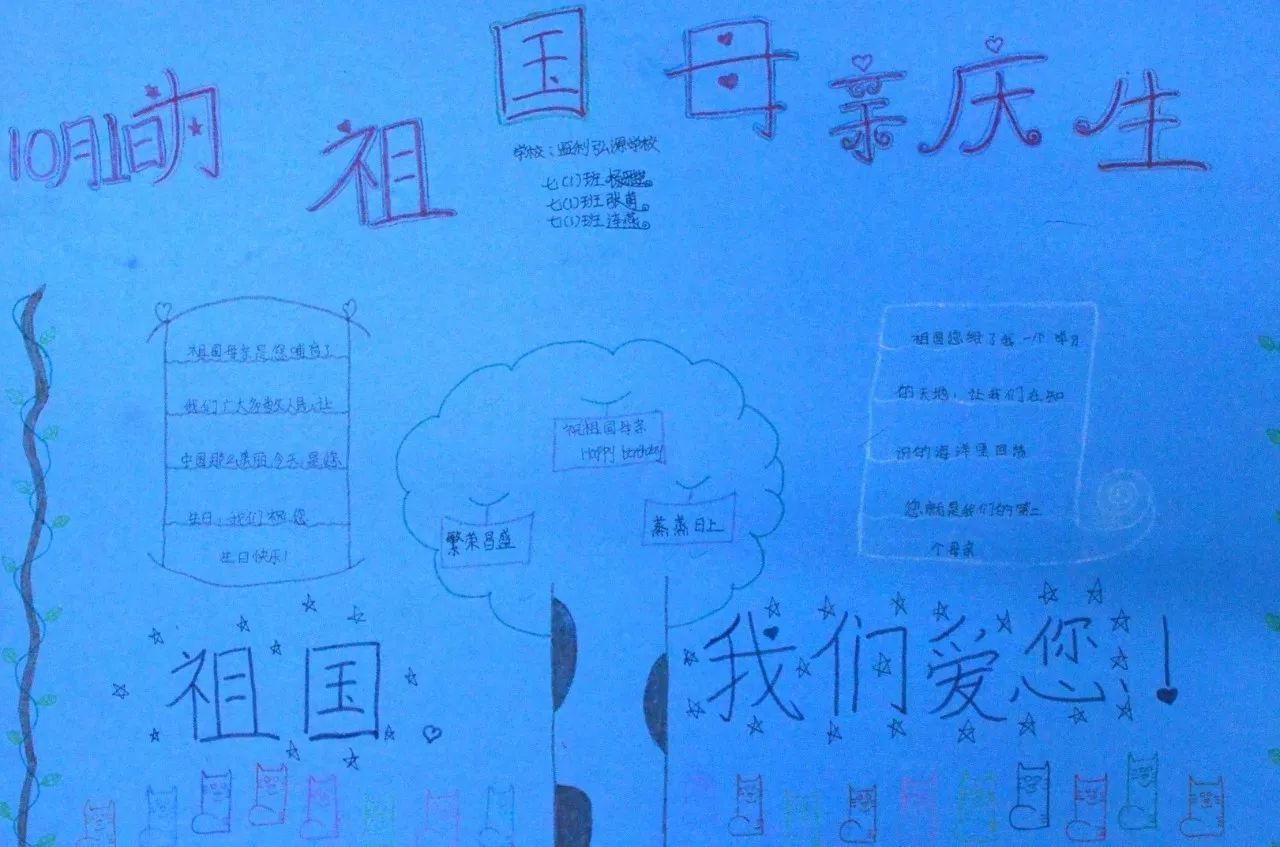 10月1日为祖国母亲庆生
学校：监利弘源学校
七(1)班
七(1)班 张萌
七(1)班 连燕
祖国母亲是您哺育了
我们广大多数人民，让
中国那么美丽今天是您
生日，我们祝您
生日快乐！
祝祖国母亲
Happy birthday
繁荣昌盛
蒸蒸日上
祖国您给了我一个
的天地，让我们在知
识的海洋里回荡
您就是我们的第二
个母亲
祖国
我们爱您！